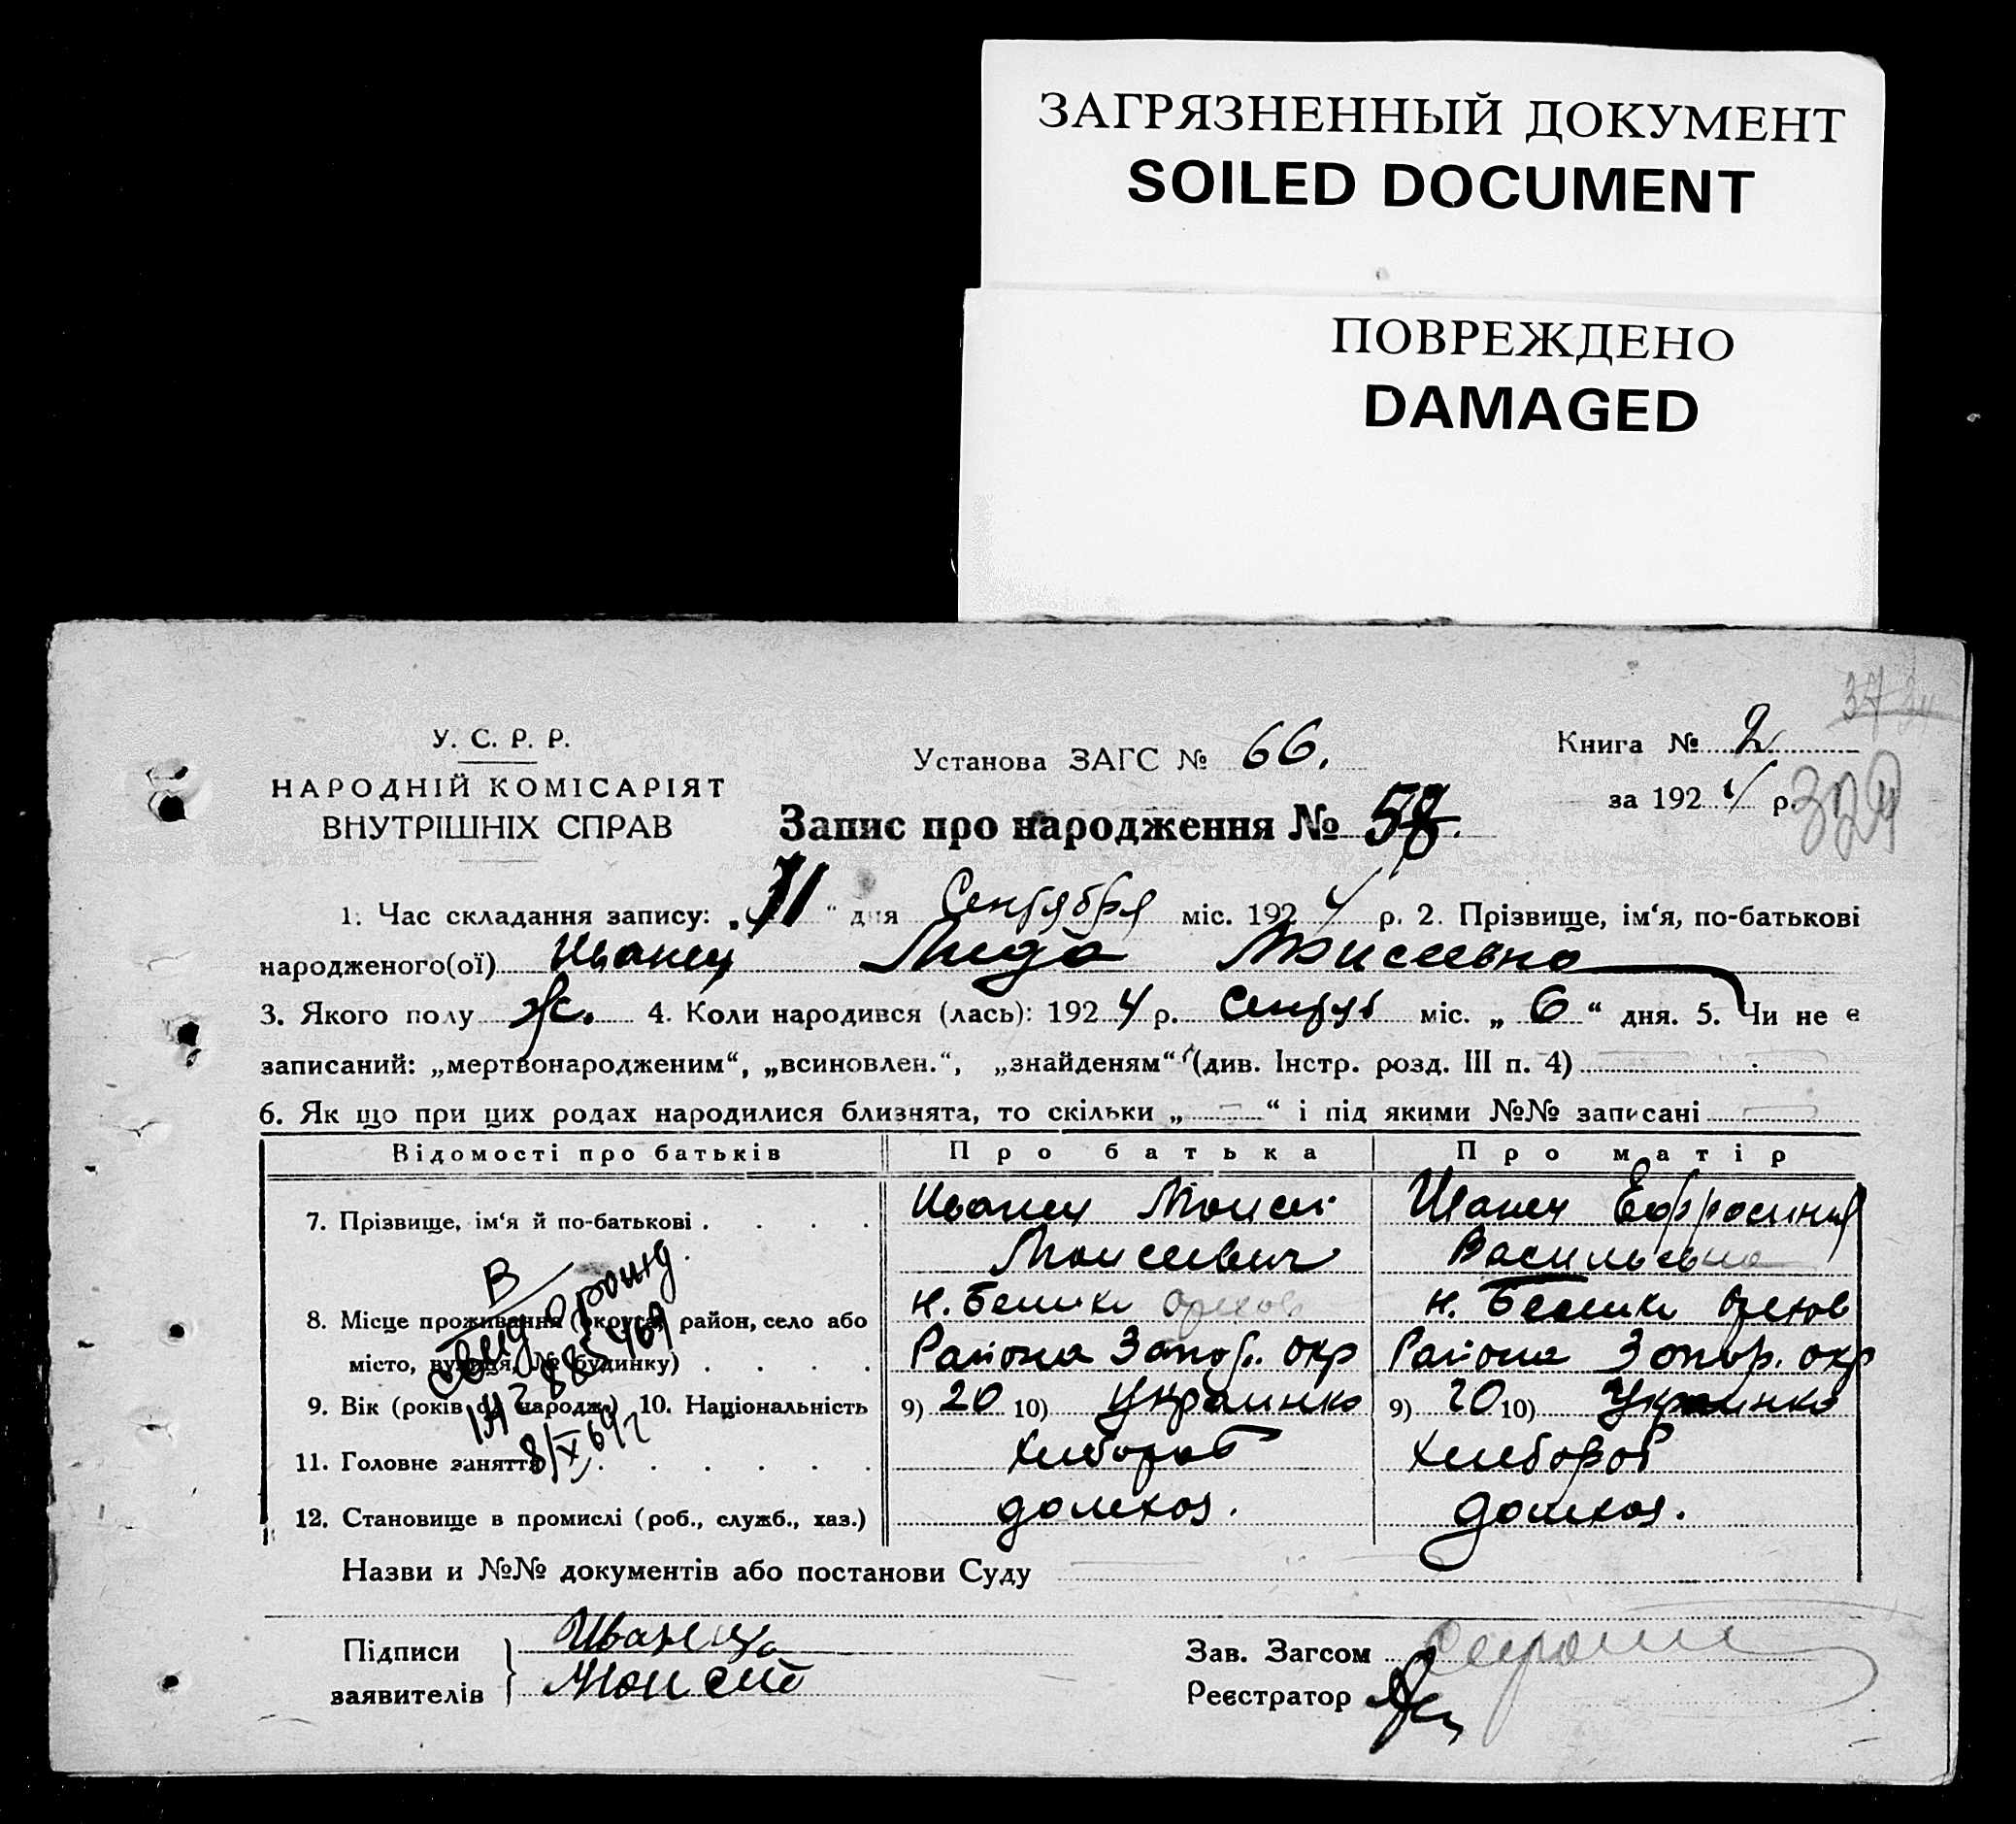 ЗАГРЯЗНЕННЫЙ ДОКУМЕНТ
SOILED DOCUMENT
ПОВРЕЖДЕНО
DAMAGED
У. С. Р. Р.
НАРОДНІЙ КОМІСАРІЯТ
ВНУТРІШНІХ СПРАВ
Установа ЗАГС № 66.
Книга № 2
за 1924 р.
Запис про народження № 58.
1. Час складання запису: „ “ дня Сентября міс. 1924 р. 2. Прізвище, ім‘я, по-батькові
народженого(ої) Иванец Лида Моисеевна
3. Якого полу ж. 4. Коли народився (лась): 1924 р. Сентяб міс. „ 6 “ дня. 5. Чи не є
записаний: „мертвонародженим“, „всиновлен.“, „знайденям“ (див. Інстр. розд. III п. 4)
6. Як що при цих родах народилися близнята, то скільки „ – “ і під якими №№ записані
Відомості про батьків Про батька Про матір
7. Прізвище, ім‘я й по-батькові . . . . Иванец Моисей Иванец Ефросиния
Моисеевич Васильевна
8. Місце проживання (округа, район, село або Орехов Орехов
місто, вулиця, № будинку) . . . . Района Запор. окр Района Запор. окр
9. Вік (років од народж.) 10. Національність 9) 20 10) Украинка 9) 20 10) Украинка
11. Головне заняття . . . . . . Хлебороб Хлебороб
12. Становище в промислі (роб., служб., хаз.) домхоз. домхоз.
В
8/X 69 г
Назви и №№ документів або постанови Суду
Підписи Иванец
заявителів Моисей
Зав. Загсом
Реєстратор